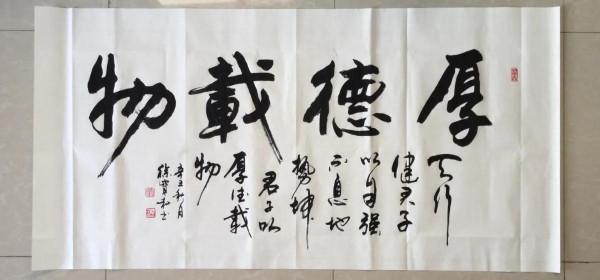 厚德載物
天行
健君子
以自强
不息地
勢坤
君子以
厚德載
物
辛丑秋月
徐寶和书